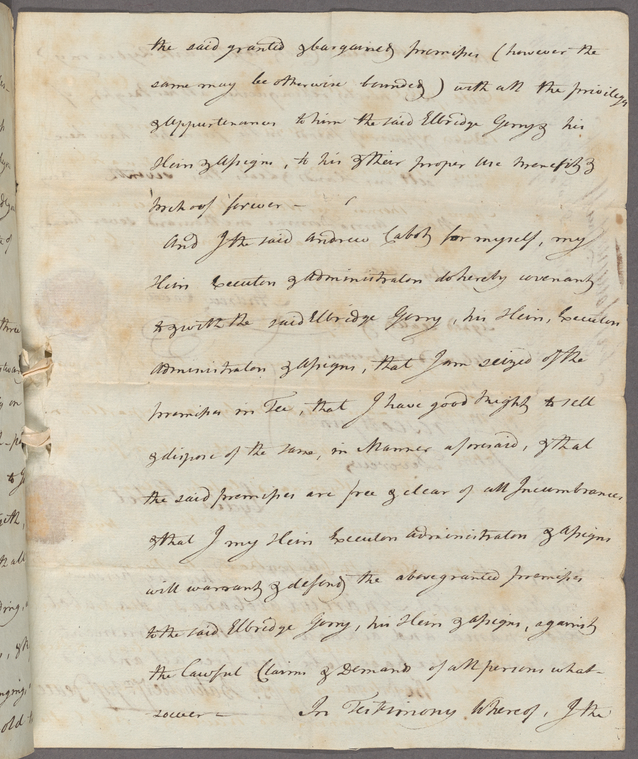 the said granted & bargained premises (however the
same may be otherwise bounded) with all the privileges
& appurtenances to him the said Elbridge Gerry & his
Heirs & assigns, to his & their proper Use benefit &
behoof forever —
And I the said Andrew Cabot for myself, my
Heirs Executors & administrators do hereby covenant
to & with the said Elbridge Gerry, his Heirs, Executors
administrators & assigns, that I am seized of the
premises in Fee, that I have good right to sell
& dispose of the same, in Manner aforesaid, & that
the said premises are free & clear of all Incumbrances
& that I my Heirs Executors administrators & assigns
will warrant & defend the above granted premises
to the said Elbridge Gerry, his Heirs & assigns, against
the lawful Claims & Demands of all persons what-
soever — In Testimony Whereof, I the